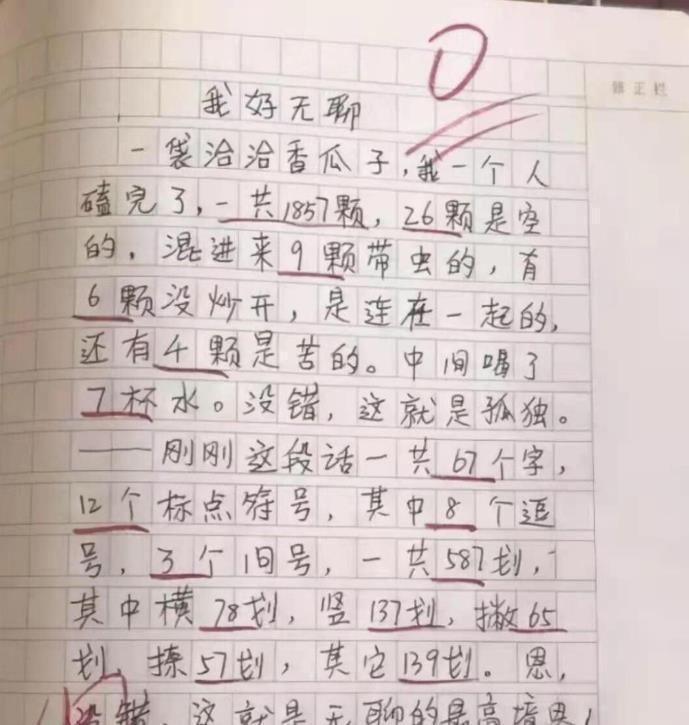 0
修正栏
我好无聊
一袋洽洽香瓜子,我一个人
磕完了,一共1857颗,26颗是空
的,混进来9颗带虫的,有
6颗没炒开,是连在一起的,
还有4颗是苦的。中间喝了
7杯水。没错,这就是孤独。
——刚刚这段话一共67个字,
12个标点符号,其中8个逗
号,3个问号,一共587划,
其中横78划,竖137划,撇65
划,捺57划,其它139划。恩,
没错,这就是无聊的最高境界!